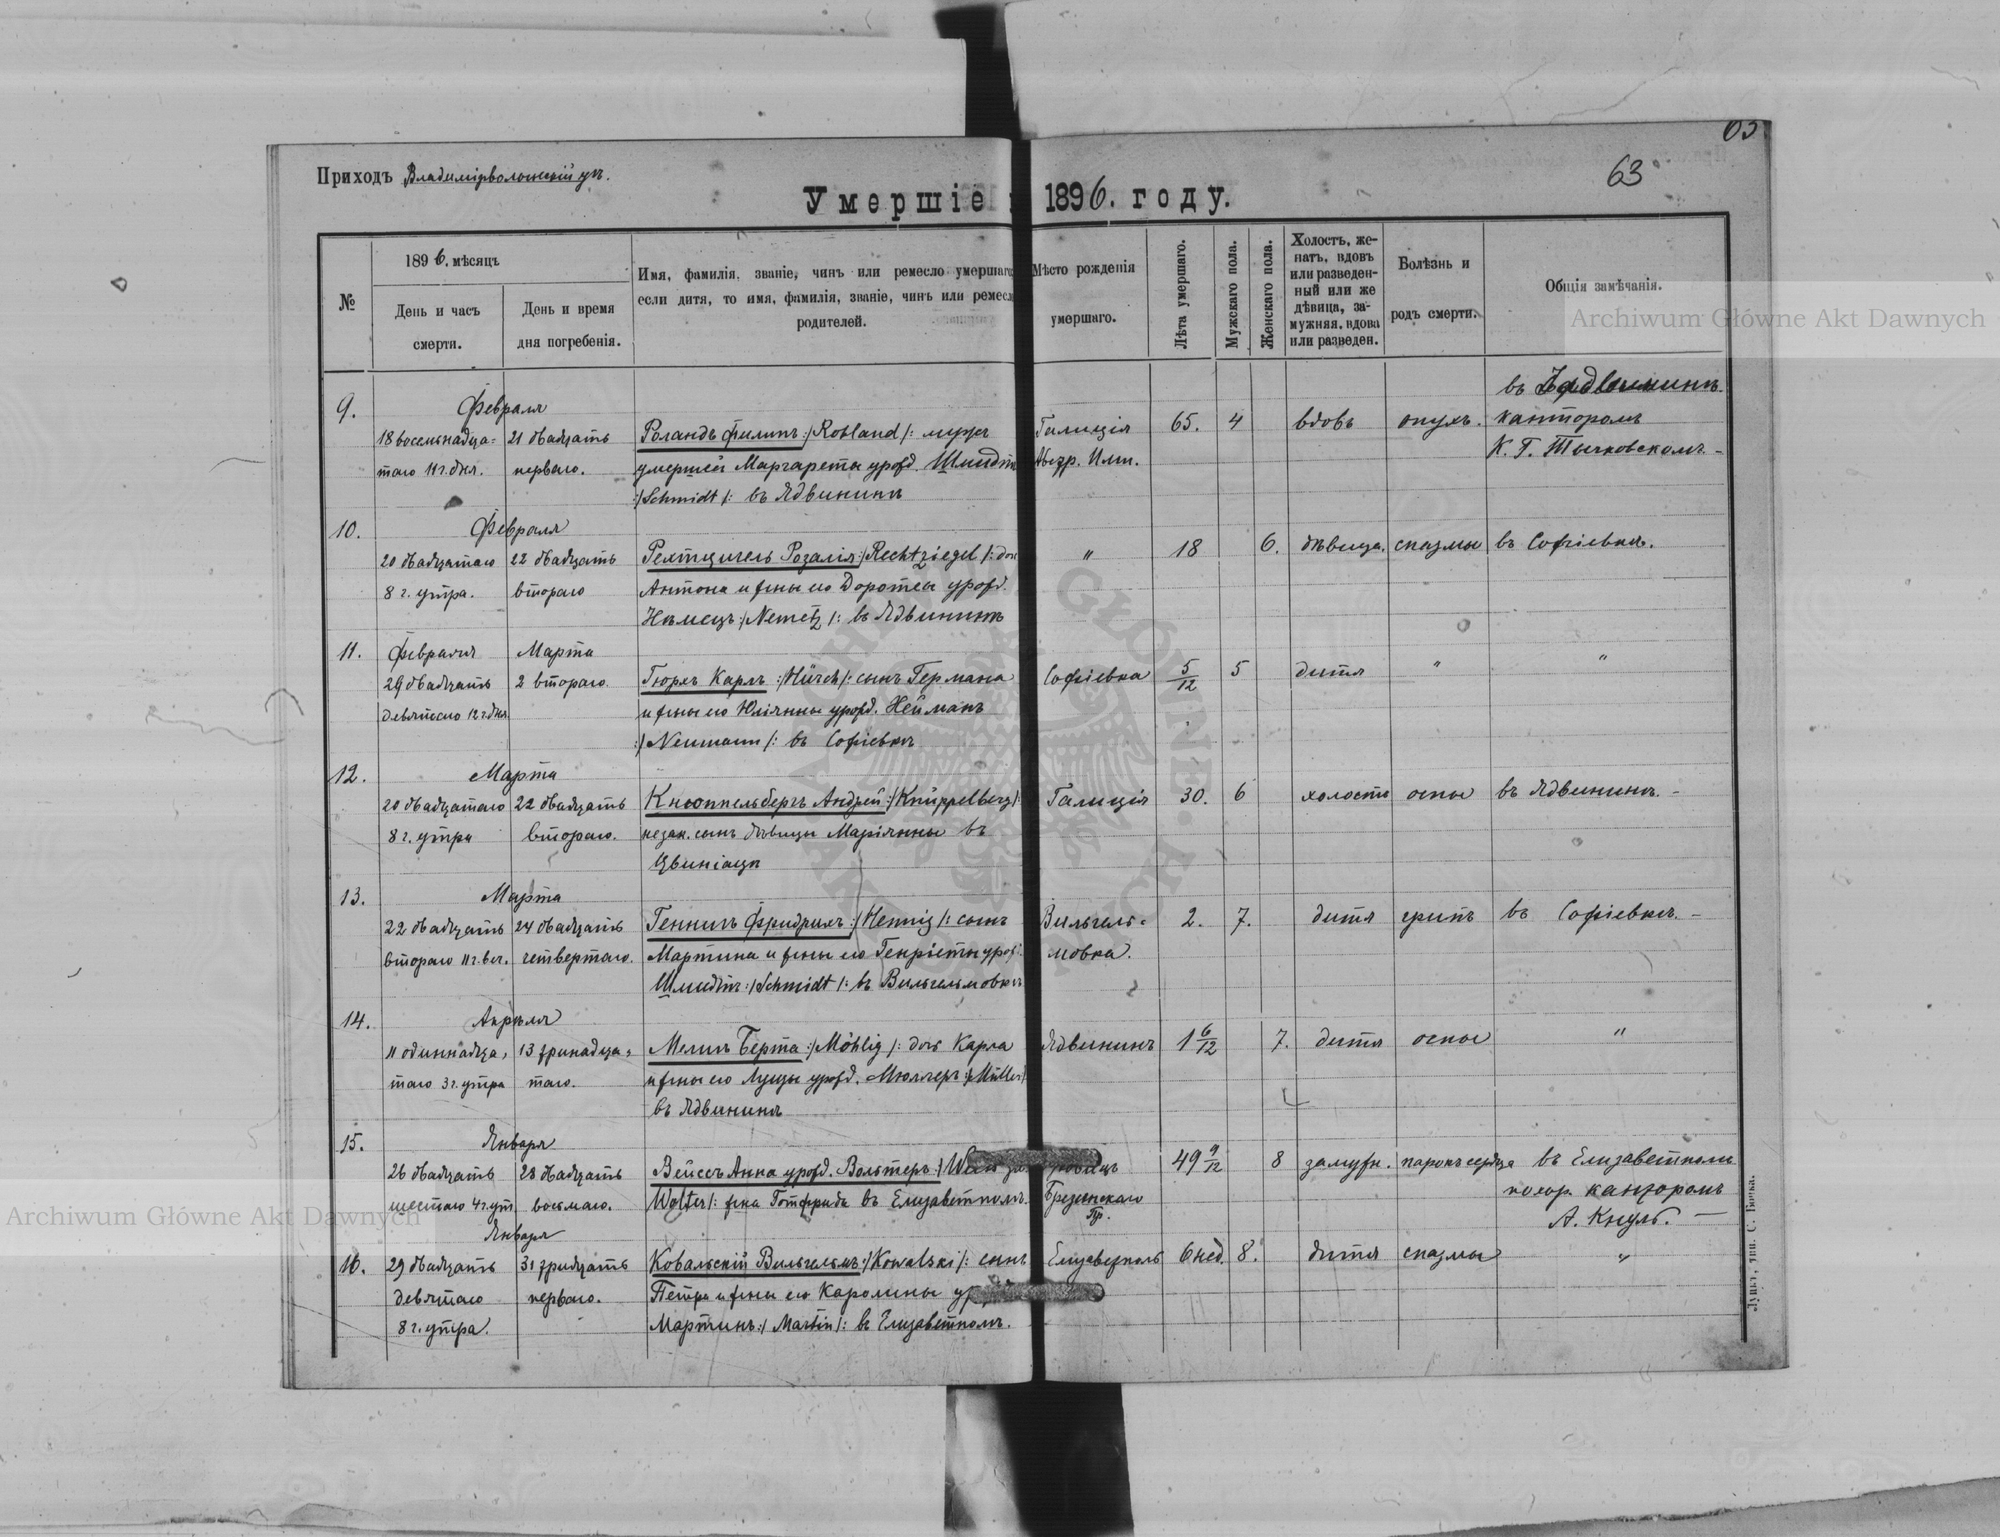 63
Приходъ Владимірволынскій у.
Умершіе 1896. году.
№
1896. мѣсяцъ
День и часъ смерти.
День и время дня погребенія.
Имя, фамилія, званіе, чинъ или ремесло умершаго
если дитя, то имя, фамилія, званіе, чинъ или ремесло
родителей.
Мѣсто рожденія
умершаго.
Лѣта умершаго.
Мужскаго пола.
Женскаго пола.
Холостъ, же-
натъ, вдовъ
или разведен-
ный или же
дѣвица, за-
мужняя, вдова
или разведен.
Болѣзнь и
родъ смерти.
Общія замѣчанія.
Archiwum Główne Akt Dawnych
9. Февраля
18 восемнадца= 21 двадцать Роландъ Филипъ :/Robland/: мужъ Галиція 65. 4 вдовъ опухъ. канторомъ
таго 11 г. дня. перваго. умершей Маргареты урожд. Шмидтъ Имп. К. Г. Тычковскомъ. -
:/Schmidt/: въ Ядвининѣ
10. Февраля
20 двадцатаго 22 двадцать Рехтцигель Розалія :/Rechtziegel/: доч " 18 6. дѣвица. спазмы въ Софіевкѣ.
8 г. утра. второго Антона и жены его Доротеи урожд.
Нѣмецъ :/Nemetz/: въ Ядвининѣ
11. Февраля Марта
29 двадцать 2 второго. Гюрхъ Карлъ :/Hürch/: сынъ Германа Софіевка 5/12 5 дитя " "
девятаго 12 г. дня и жены его Юліянны урожд. Нейманъ
:/Neumann/: въ Софіевкѣ
12. Марта
20 двадцатаго 22 двадцать Кнюппельбергъ Андрей :/Knüppelberg/: Галиція 30. 6 холостъ оспы въ Ядвининѣ. -
8 г. утра второго. незак. сынъ дѣвицы Маріянны въ
Цвиніацѣ
13. Марта
22 двадцать 24 двадцать Геннигъ Фридрихъ :/Hennig/: сынъ Вильгель= 2. 7. дитя грипъ въ Софіевкѣ. -
второго 11 г. веч. четвертаго. Мартина и жены его Генріеты урож. мовка.
Шмидтъ :/Schmidt/: въ Вильгельмовкѣ
14. Апрѣля
11 одиннадца= 13 тринадца= Мелигъ Берта :/Möhlig/: доч Карла Ядвининъ 1 6/12 7. дитя оспы "
таго 3 г. утра таго. и жены его Луизы урожд. Мюллеръ :/Müller/
въ Ядвининѣ
15. Января
26 двадцать 28 двадцать Вейссъ Анна урожд. Вольтеръ :/ 49 9/12 8 замужн. парокъ сердца въ Елизаветполѣ
шестаго 4 г. ут восьмаго. Wolter/: жена Готфрида въ Елизаветполѣ. Брезинскаго похор. канторомъ
А. Кнулъ. -
Января
16. 29 двадцать 31 тридцать Ковальскій Вильгельмъ :/Kowalski/: сынъ Елизаветполь 6 нед. 8. дитя спазмы "
девятаго перваго. Петра и жены его Каролины
8 г. утра. Мартинъ :/Martin/: въ Елизаветполѣ.
Archiwum Główne Akt Dawnych